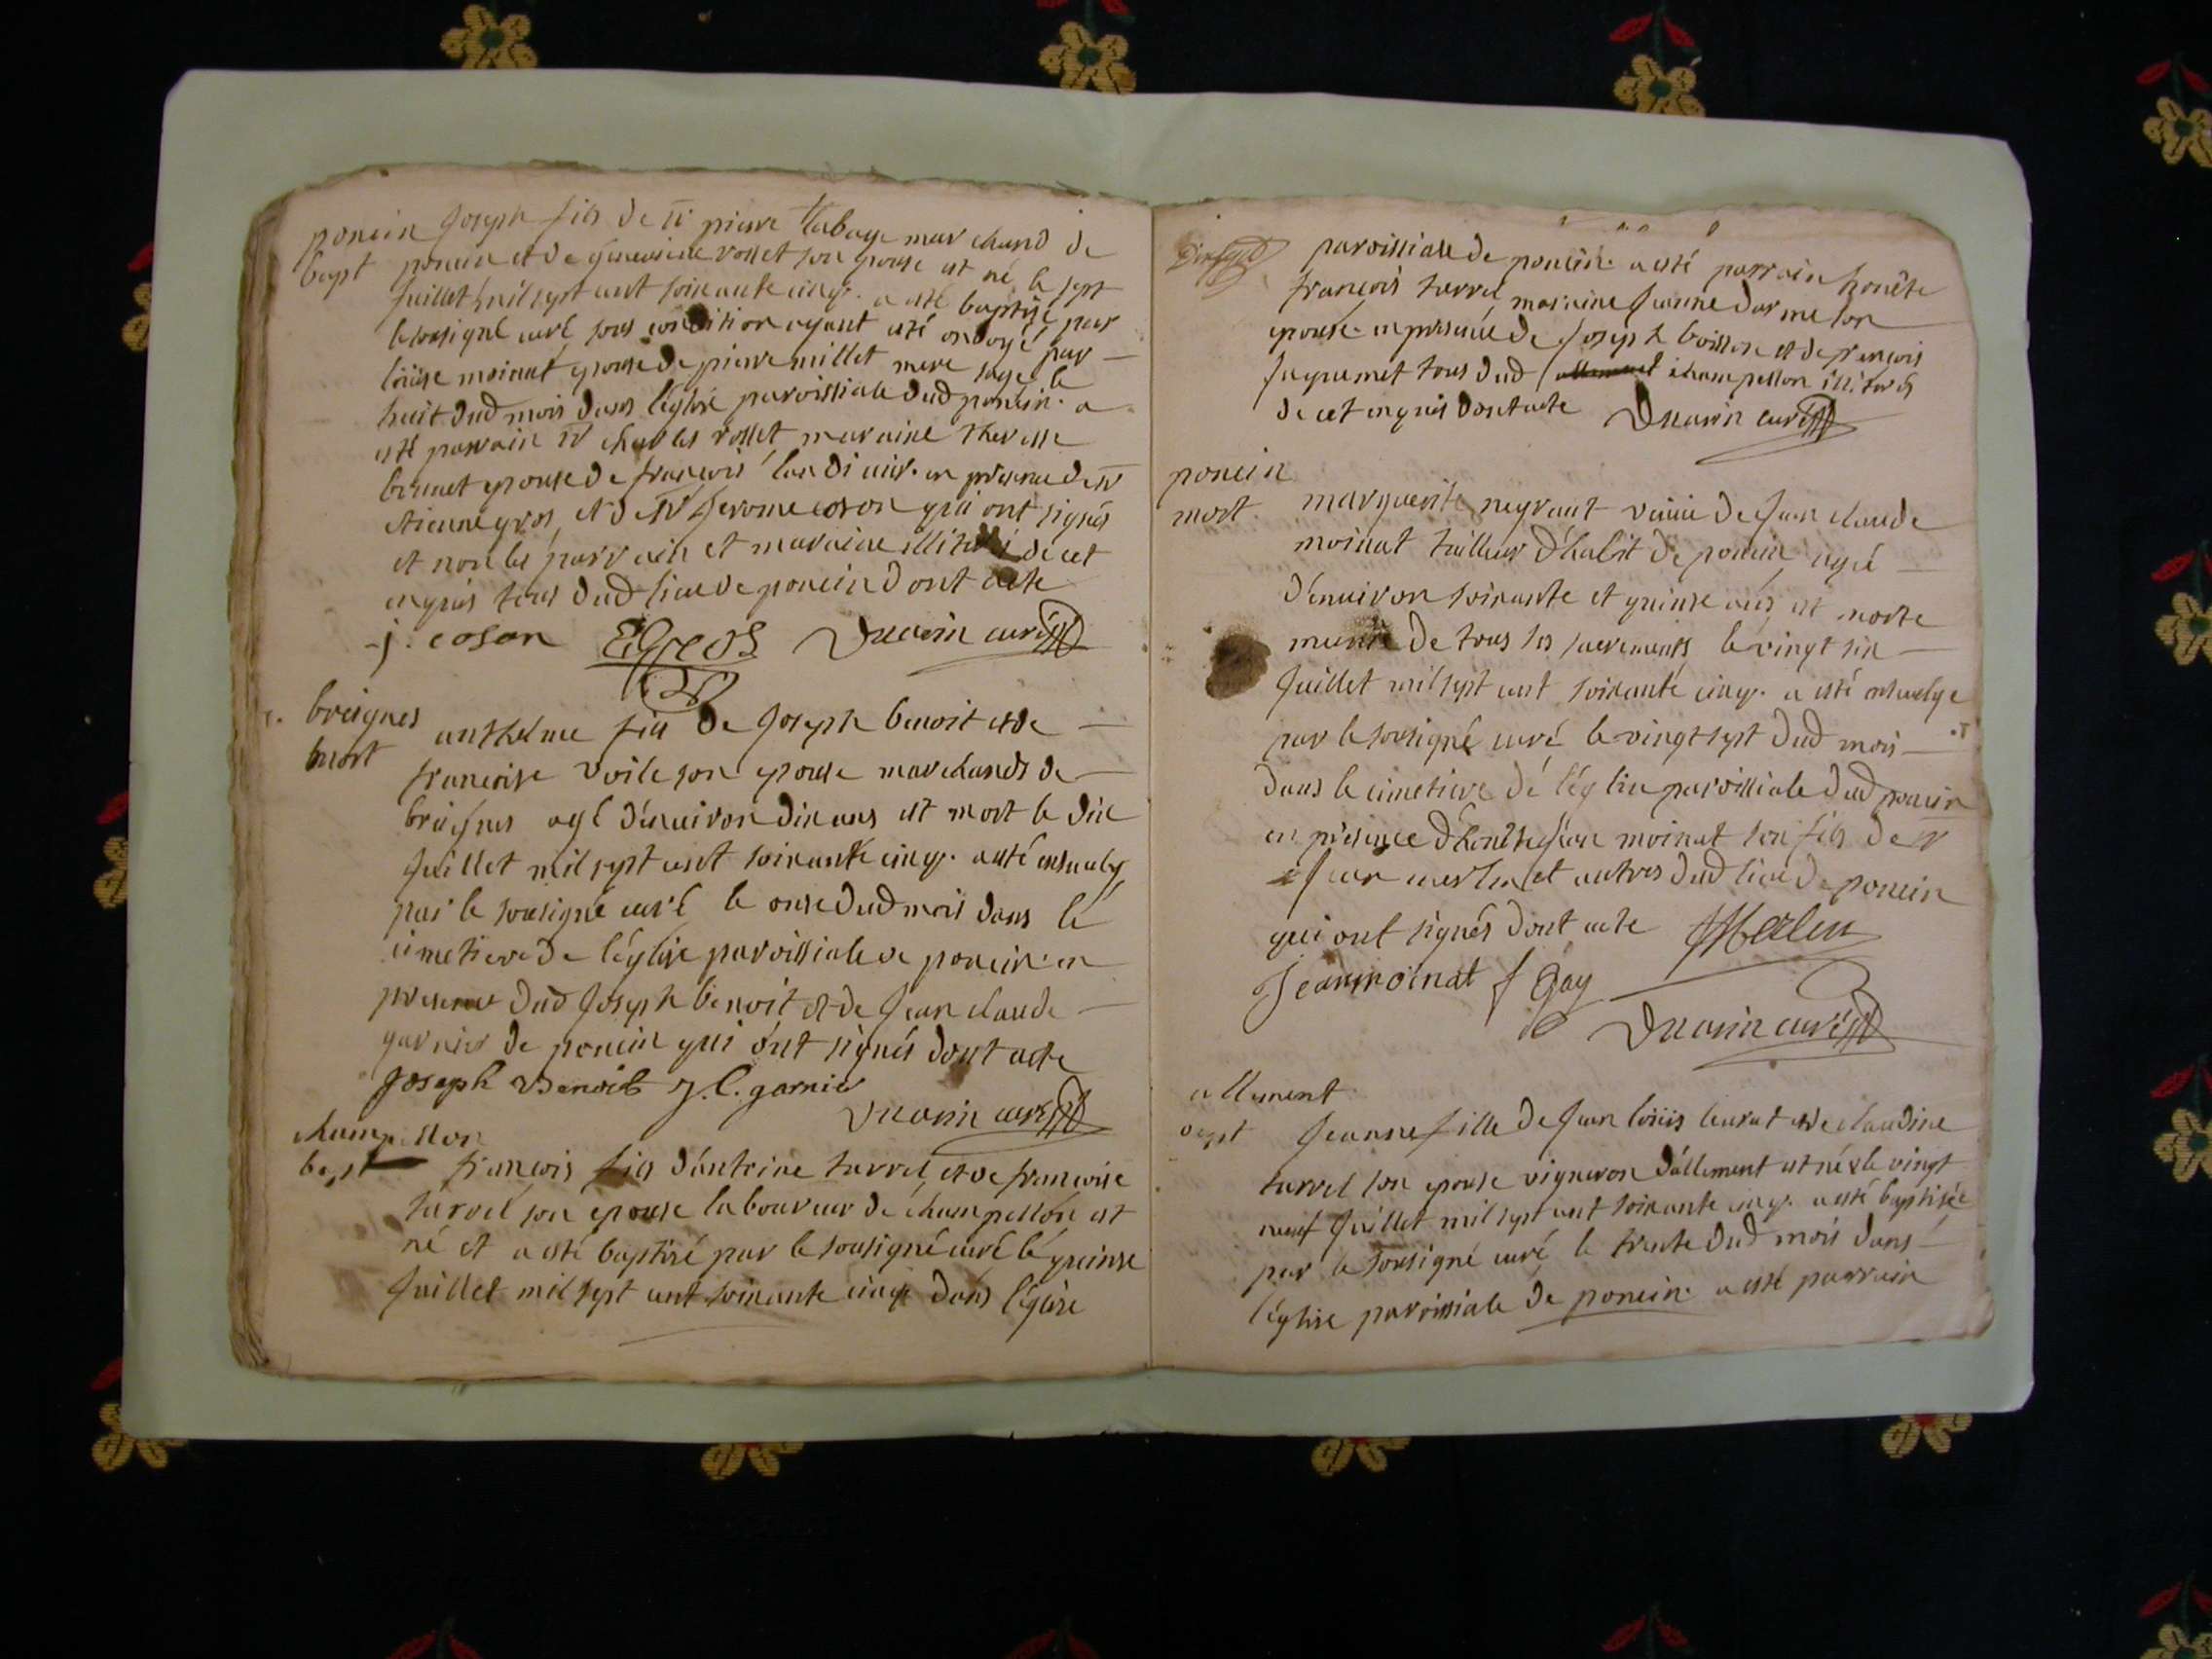 poncin Joseph fils de sr pierre labaye marchand de
bapt poncin et de genevieve rosset son epouse est né le sept
Juillet mil sept cent soixante cinq. a esté baptisé par
le sousigné curé sous condition ayant esté ondoyé par
loüise moinat epouse de pierre millet mere sage le
huit dud mois dans léglise paroissiale dud poncin. a
esté parrain sr charles rosset maraine therese
bonnet epouse de francois en presence de sr
etienne gros et de sr Jerome coson qui ont signés
et non les parrain et maraine illiterés de cet
enquis tous dud lieu de poncin dont acte
j. coson EGros curé
breignes anthelme fils de Joseph benoit et de
mort francoise voile son epouse marchands de
breignes agé dénviron dix ans est mort le dix
Juillet mil sept cent soixante cinq. a esté ensevely
par le sousigné curé le onze dud mois dans le
cimetiere de léglise paroissiale de poncin. en
presence dud Joseph benoit et de Jean claude
garnier de poncin qui ont signés dont acte
Joseph Benoit J. C. garnier
curé
champellon
bapt francois fils dántoine turrel et de francoise
turrel son epouse laboureur de champellon est
né et a esté baptisé par le sousigné curé le quinze
Juillet mil sept cent soixante cinq dans léglise
paroissiale de poncin. a esté parrain honéte
francois turrel, maraine Jeanne darmeson
epouse. en presence de Joseph boisson et de francois
Juquemet tous dud champellon illiterés
de cet enquis dont acte curé
poncin
mort marguerite neyraut veuve de Jean claude
moinat tailleur dhabit de poncin agée
dénviron soixante et quinze ans est morte
munie de tous ses sacrements le vingt six
Juillet mil sept cent soixante cinq. a esté ensevelye
par le sousigné curé le vingt sept dud mois
dans le cimetiere de léglise paroissiale dud poncin
en présence dhonéte Jean moinat son fils de sr
Jean merlin et autres dud lieu de poncin
qui ont signés dont acte JMerlin
Jean moinat f Gay
curé
allement
bapt Jeanne fille de Jean loüis leurat et de claudine
turrel son epouse vigneron dállement est née le vingt
neuf Juillet mil sept cent soixante cinq. a esté baptisée
par le sousigné curé le trente dud mois dans
léglise paroissiale de poncin. a esté parrain